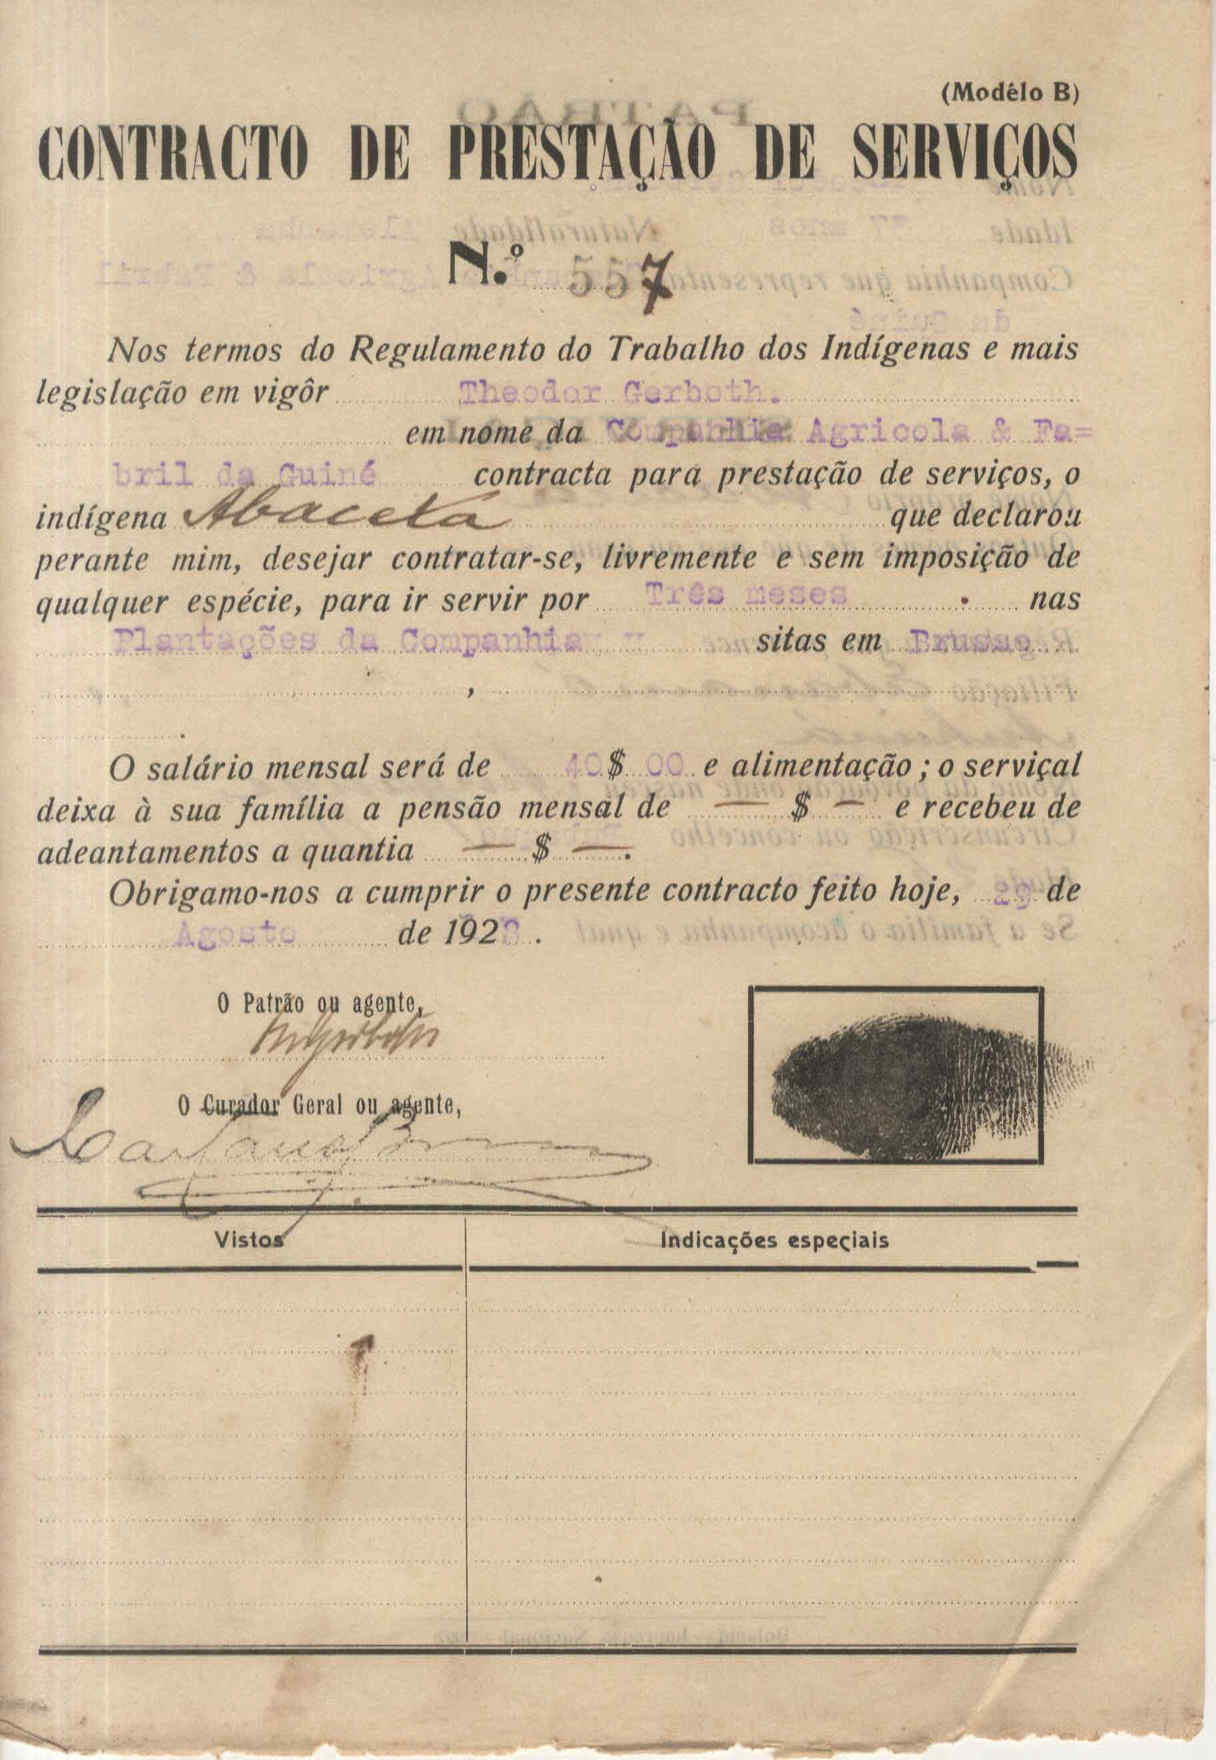 (Modêlo B)
CONTRACTO DE PRESTAÇÃO DE SERVIÇOS
N.º 557
Nos termos do Regulamento do Trabalho dos Indígenas e mais
legislação em vigôr Theodor Gerboth.
em nome da Companhia Agricola & Fa=
bril da Guiné contracta para prestação de serviços, o
indígena Abaceta que declarou
perante mim, desejar contratar-se, livremente e sem imposição de
qualquer espécie, para ir servir por Três meses nas
Plantações da Companhia sitas em Brusse
O salário mensal será de 40$00 e alimentação; o serviçal
deixa à sua família a pensão mensal de — $ — e recebeu de
adeantamentos a quantia — $ —.
Obrigamo-nos a cumprir o presente contracto feito hoje, 29 de
Agosto de 1928.
O Patrão ou agente,
O Curador Geral ou agente,
Vistos
Indicações especiais